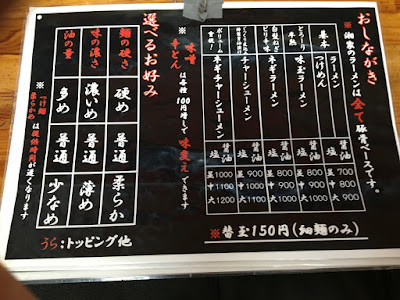 おしながき
※湘家のラーメンは全て豚骨ベースです。
基本
ラーメン
つけめん
とろ〜り
半熟
味玉ラーメン
白髪ねぎ
とピリ辛味
ネギラーメン
チャーシューメン
ボリューム
重視！
ネギチャーシューメン
醤油 塩 並 700 中 800 大 900
醤油 塩 並 800 中 900 大 1000
醤油 塩 並 900 中 1000 大 1100
醤油 塩 並 1000 中 1100 大 1200
※替玉150円(細麺のみ)
※味噌
辛とん
は各種100円増しで味変えできます
選べるお好み
麺の硬さ 硬め 普通 柔らか
味の濃さ 濃いめ 普通 薄め
油の量 多め 普通 少なめ
※つけ麺
柔らかめ
は提供時間が遅くなります
うら:トッピング他